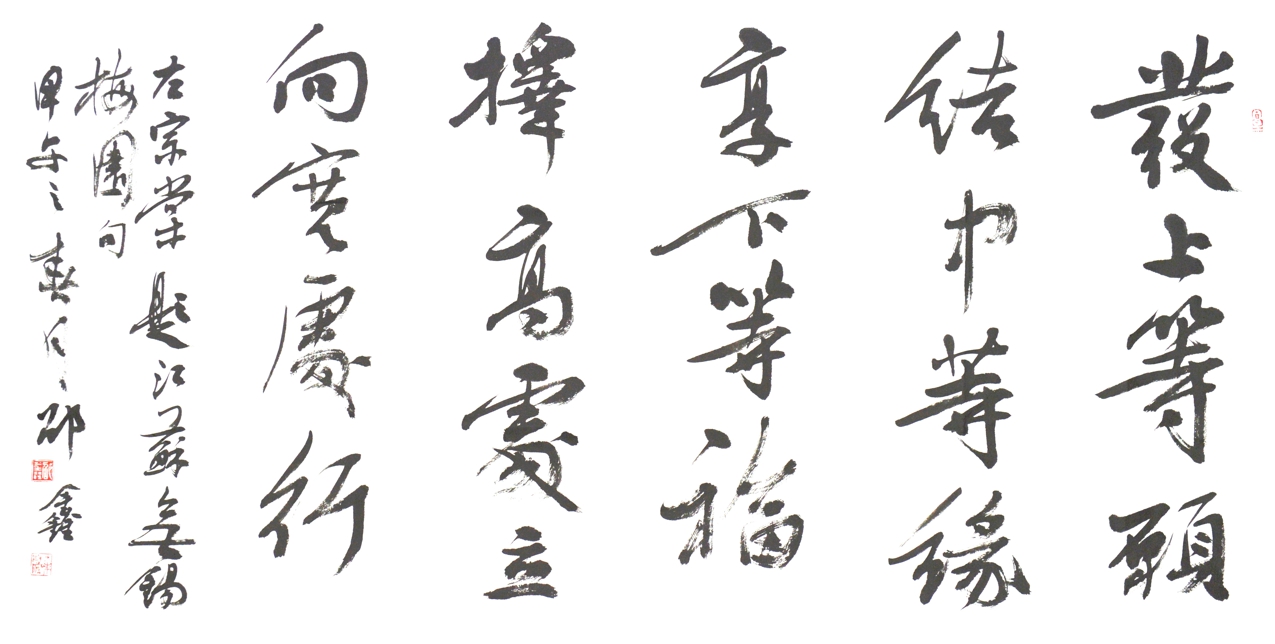 發上等願
結中等緣
享下等福
擇高處立
向寬處行
左宗棠題江蘇無錫
梅園句
甲午之春月邵鑫